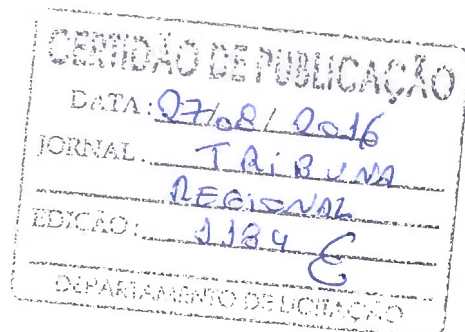 CERTIDÃO DE PUBLICAÇÃO
DATA: 27/08/2016
JORNAL: TRIBUNA
REGIONAL
EDIÇÃO: 1184
DEPARTAMENTO DE LICITAÇÃO